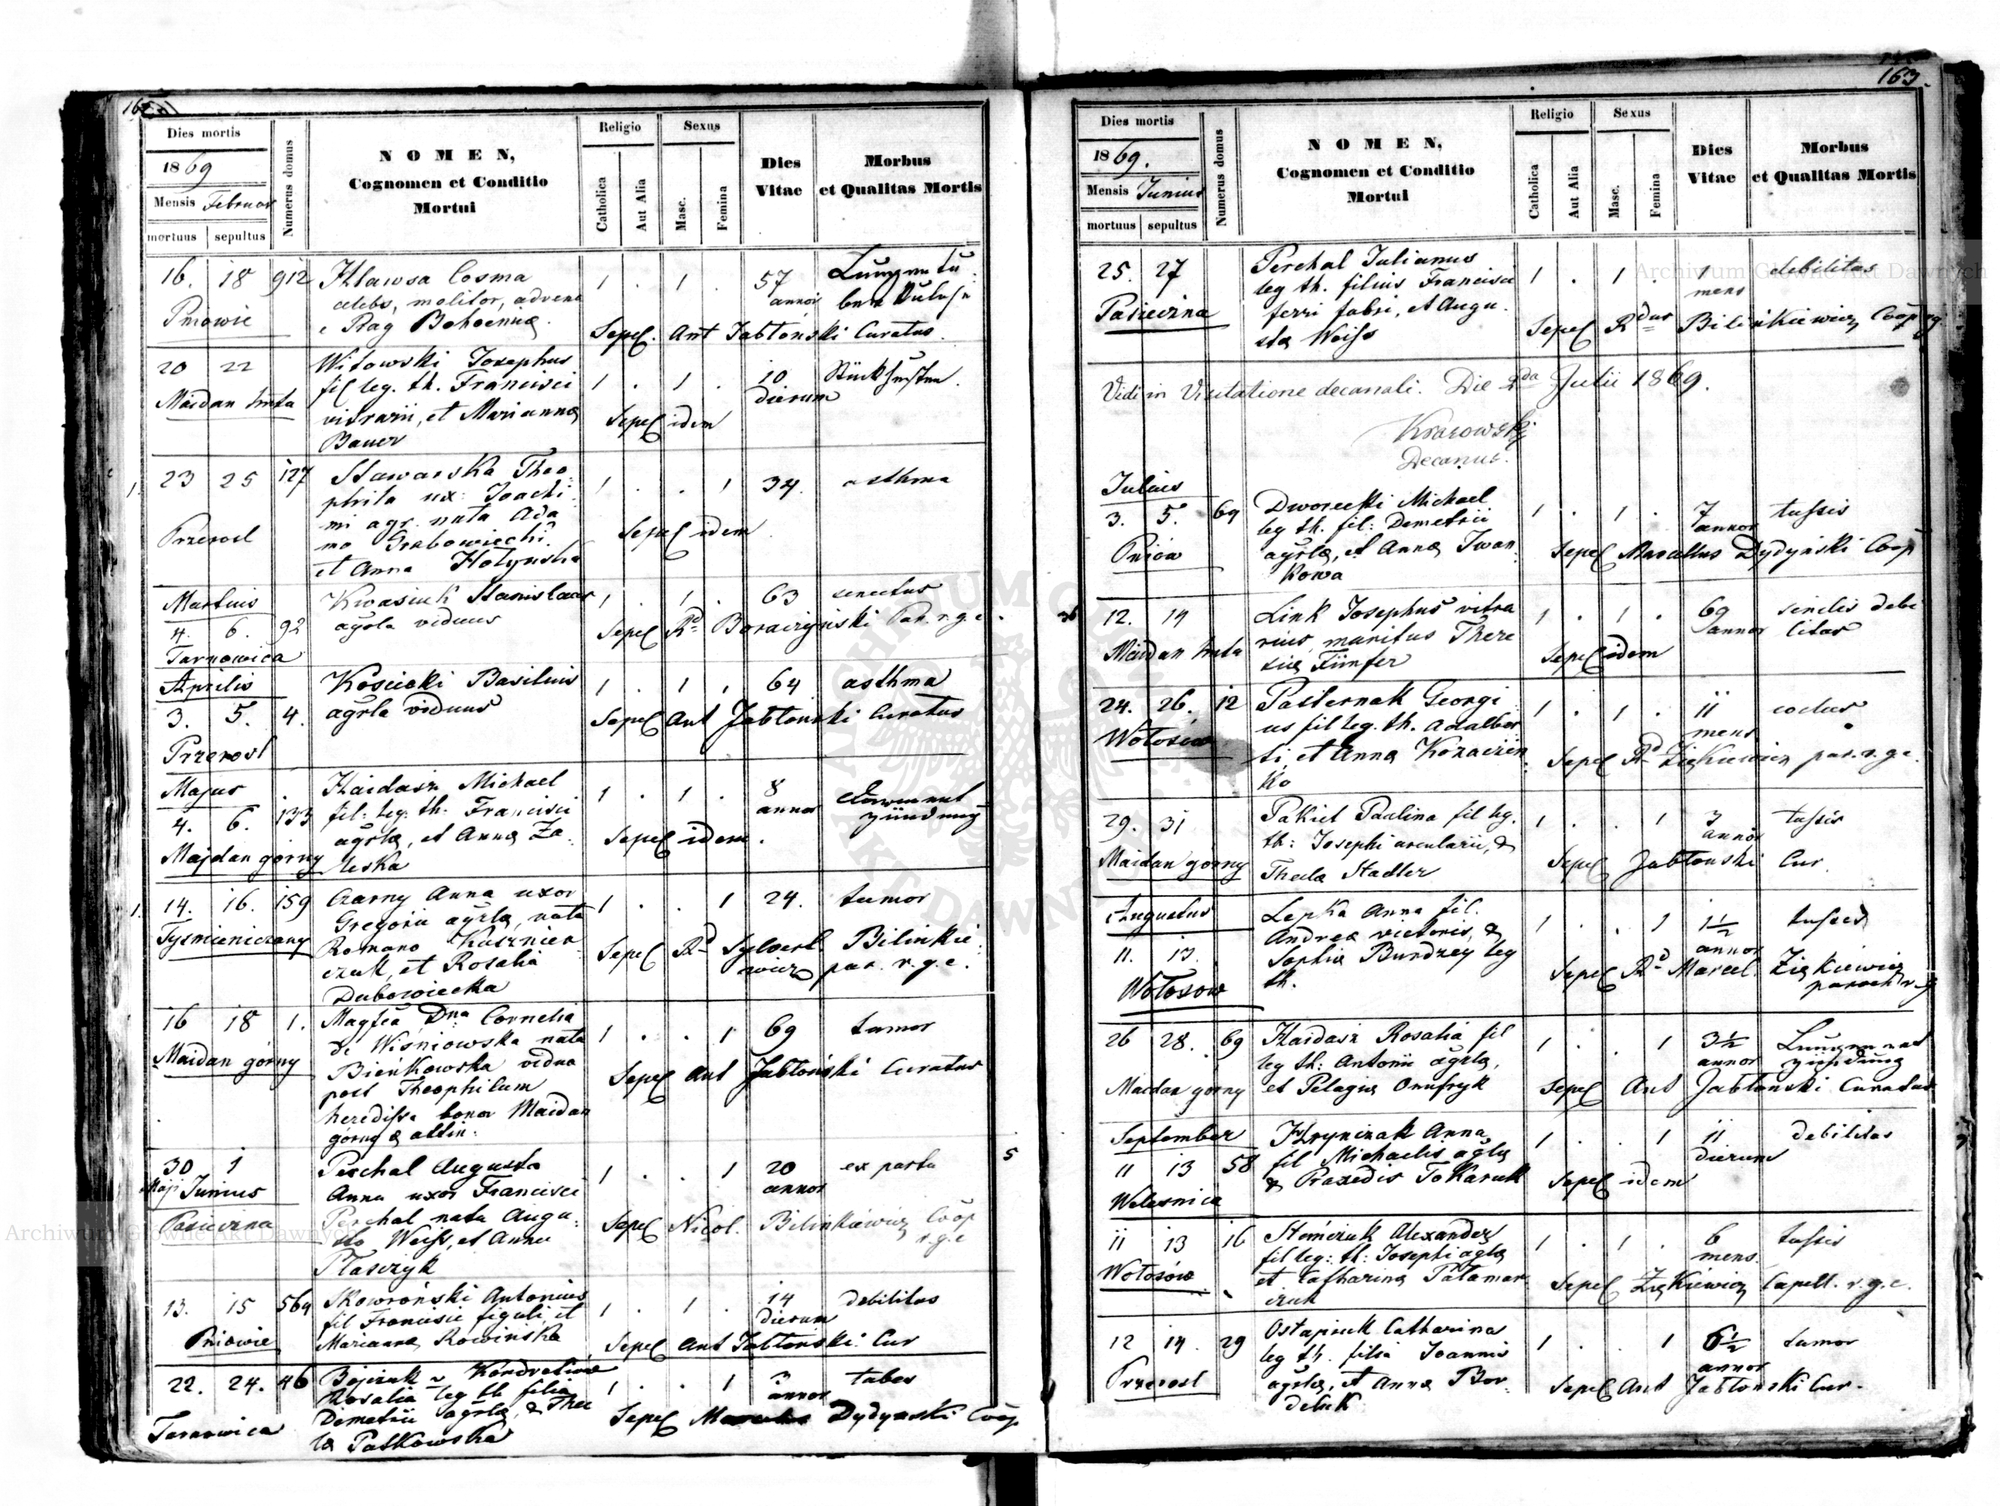 163.
Dies mortis
1869
Mensis Februar
mortuus sepultus
Numerus domus
NOMEN,
Cognomen et Conditio
Mortui
Religio
Catholica
Aut Alia
Sexus
Masc.
Femina
Dies
Vitae
Morbus
et Qualitas Mortis
16. 18 912 Hlawsa Cosma 1 . 1 . 57
celebs, molitor, advena annor
Pniowie e Prag Bohoemiæ. Sepel. Ant Jabłonski Curatus.
20 22 Witowski Josephus
fil leg. th. Francisci 1 . 1 . 10 Stückhusten.
Maidan huta vitrarii, et Mariannæ dierum
Bauer Sepel idem
23 25 127 Stawarska Theo 1 . . 1 34. asthma
phila ux: Joachi
mi agr. nata Ada Sepel idem
Przerosl mo Grabowiecki
et Anna Hołynska
Martius Kwasiuk Stanislaus 1 . 1 . 63 senectus
4. 6. 92 agrla viduus Sepel Rd par. r. g. c.
Tarnowica
Aprilis Kosciecki Basilius 1 . 1 . 64 asthma
3. 5. 4. agrla viduus Sepel Ant Jabłonski Curatus
Przerosl
Majus Haidasz Michael 1 . 1 . 8
4. 6. 133 fil. leg. th. Francisci annor
agrlæ, et Annæ Za Sepel idem.
Majdan gorny leska
14. 16. 159 Czarny Anna uxor 1 . . 1 24. tumor
Gregorii agrlæ, nata
Tysmieniczany Romano Kusznier Sepel Rd Sylvest Bilinkie
czuk, et Rosalia wicz par. r. g. c.
Dubowiecka
16 18 1. Magfca Dna Cornelia 1 . . 1 69 tumor
de Wisniowska nata
Maidan górny Bieńkowska vidua Sepel Ant Jabłonski Curatus
post Theophilum
heredissa bonor Maidan
górny & attin.
30 1 Perchal Augusta 1 . . 1 20 ex partu
Maji Junius Anna uxor Francisci annor
Pasieczna Perchal nata Augu Sepel Nicol. Bilinkiewicz Coop
sto Weiss, et Anna r. g. c
Ptasczyk
13. 15 569 Skowroński Antonius 1 . 1 . 14 debilitas
fil Francisci figuli, et dierum
Pniowie Mariannæ Rowinska Sepel Ant Jabłonski Cur
22. 24. 46 Bojczuk v Kondratiow 1 . . 1 3 tabes
Rosalia leg th filia annor
Demetrii agrlæ, & Thec Sepel Dydynski Coop
Tarnowica læ Patkowska
Dies mortis
1869.
Mensis Junius
mortuus sepultus
Numerus domus
NOMEN,
Cognomen et Conditio
Mortui
Religio
Catholica
Aut Alia
Sexus
Masc.
Femina
Dies
Vitae
Morbus
et Qualitas Mortis
25. 27 Perchal Julianus 1 . 1 . 1 debilitas
leg th. filius Francisci mens
Pasieczna ferri fabri, et Augu Sepel Rdus Bilinkiewicz Coop rg
stæ Weiss
Vidi in Visitatione decanali. Die 2da Julii 1869.
Krasowski
Decanus.
Julius Dworecki Michael 1 . 1 . 7 tussis
3. 5. 69 leg th. fil: Demetrii annor
Pniów agrlæ, et Annæ Iwan Sepel Marcellus Dydyński Coop
kowa
12. 14 Link Josephus vitra 1 . 1 . 69 senilis debi
rius, maritus There annor litas
Maidan huta siæ Fünfer Sepel idem
24. 26. 12 Pasternak Georgi 1 . 1 . 11
us fil leg. th. Adalber mens
Wołosow ti, et Annæ Kozaczen Sepel Rd Ziękiewicz par. r. g. c.
ko
29. 31 Pakiet Paulina fil leg. 1 . . 1 3 tussis
th: Josephi arcularii, & annor
Maidan górny Theclæ Stadler Sepel Jabłonski Cur.
Augustus Lepka Anna fil. 1 . . 1 1½ tussis
11. 13. Andreæ victoris, & annor
Sophiæ Burdzey leg Sepel Rd Marcel. Ziękiewicz
Wołosow th. paroch r. g
26 28. 69 Haidasz Rosalia fil 1 . . 1 3½
leg th: Antonii agrlæ, annor
Maidan gorny et Pelagiæ Onufryk Sepel Ant Jabłonski Curatus
September Hrynizak Anna 1 . . 1 11 debilitas
11 13 58 fil Michaelis agrlæ dierum
& Praxedis Tokaruk Sepel idem
Welesnica
11 13 16 Stomczuk Alexander 1 . 1 . 6 tussis
fil leg: th: Josephi agrlæ mens.
Wołosów et Catharinæ Patamar Sepel Ziękiewicz Capell. r. g. c.
czuk
12 14 29 Ostapiuk Catharina 1 . . 1 6½ tumor
leg th. filia Joannis annor
Przerosl agrlæ, et Annæ Bor Sepel Ant Jabłonski Cur.
deluk
Archiwum Główne Akt Dawnych